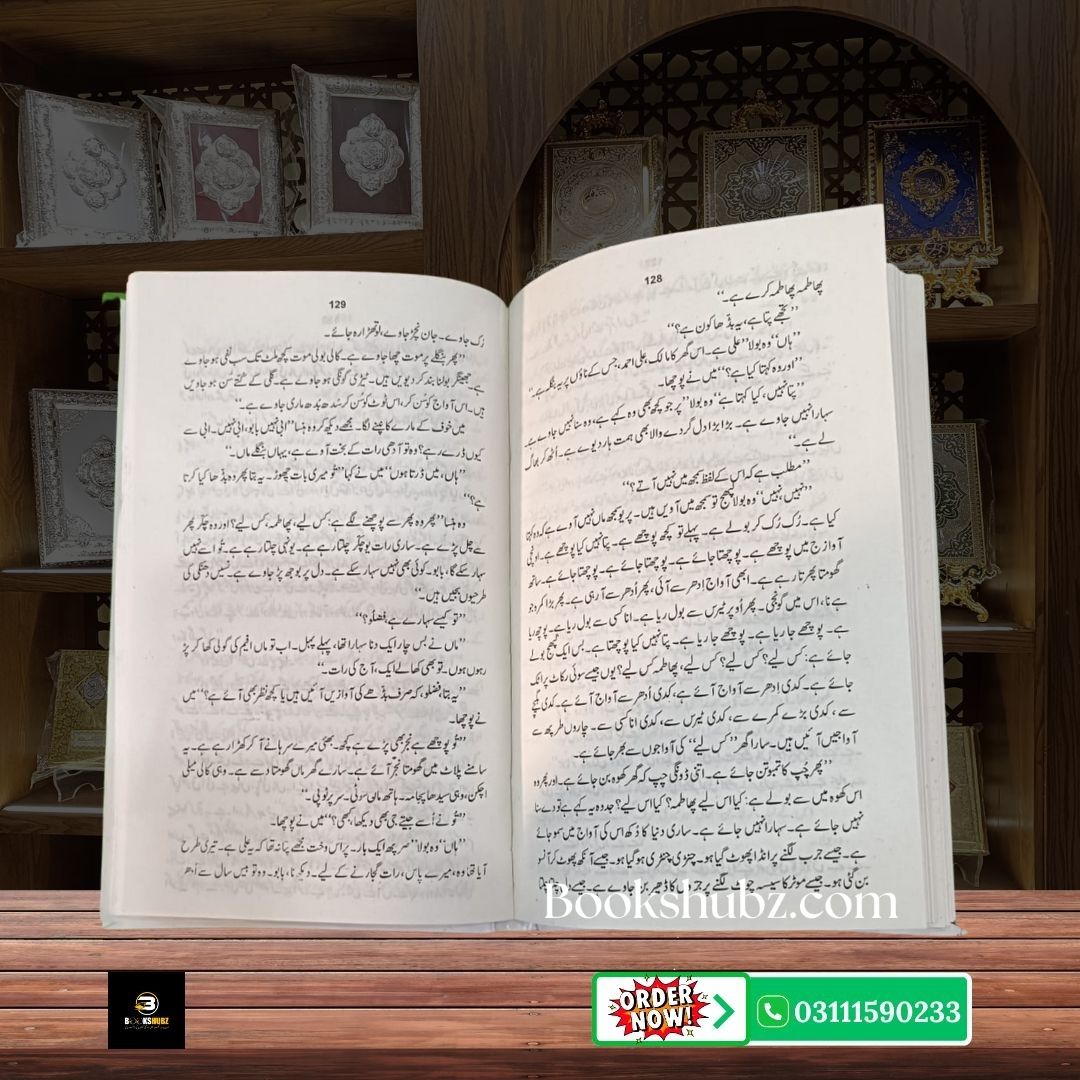 128
پھاطمہ پھاطمہ کرے ہے۔‘‘
’’تجھے پتا ہے، یہ بڈھا کون ہے؟‘‘
’’ہاں‘‘ وہ بولا ’’علی ہے۔ اس گھر کا مالک، علی احمد، جس کے ناؤں پر یہ بنگلہ ہے۔‘‘
’’اور وہ کہتا کیا ہے؟‘‘ میں نے پوچھا۔
’’پتا نہیں، کیا کہتا ہے‘‘ وہ بولا ’’پر جو کچھ بھی وہ کہے ہے، وہ سنا نہیں جاوے ہے۔
سہارا نہیں جاوے ہے۔ بڑا بڑا دل گردے والا بھی ہمت ہار دیوے ہے۔ اُٹھ کر بھاگ
لے ہے۔‘‘
’’مطلب ہے کہ اس کے لفظ سمجھ میں نہیں آتے؟‘‘
’’نہیں نہیں‘‘ وہ بولا ’’لپھج تو سمجھ میں آویں ہیں۔ پر یو سمجھ ماں نہیں آوے ہے کہ وہ کہتا
کیا ہے۔ رُک رُک کر بولے ہے۔ پہلے تو کچھ پوچھے ہے۔ پتا نہیں کیا پوچھے ہے۔ اونچی
آواز ج میں پوچھے ہے۔ پوچھتا جائے ہے۔ پوچھتا جائے ہے۔ پوچھتا جائے ہے۔ ساتھ
گھومتا پھرتا رہے ہے۔ ابھی آواج اِدھر سے آئی، پھر اُدھر سے آ رہی ہے۔ پھر بڑا کمرہ جو
ہے نا، اس میں گونجی۔ پھر اُوپر ٹیرس سے بول ریا ہے۔ انا کسی سے بول ریا ہے۔ پوچھ ریا
ہے۔ پوچھے جا ریا ہے۔ پوچھے جا ریا ہے۔ پتا نہیں کیا پوچھتا ہے۔ بس ایک لپھج بولے
جائے ہے: کس لیے؟ کس لیے؟ کس لیے، پھاطمہ کس لیے؟ یوں جیسے سوئی رکاٹ پر اٹک
جائے ہے۔ کدی اِدھر سے آواج آئے ہے، کدی اُدھر سے آواج آئے ہے۔ کدی نیچے
سے، کدی بڑے کمرے سے، کدی ٹیرس سے، کدی انا کسی سے۔ چاروں طریھ سے
آواجیں آئیں ہیں۔ سارا گھر ’’کس لیے‘‘ کی آواجوں سے بھر جائے ہے۔
’’پھر چُپ کا تمبو تن جائے ہے۔ اتنی ڈونگی چپ کہ گھر کھوہ بن جائے ہے۔ اور پھر وہ
اس کھوہ میں سے بولے ہے: کیا اس لیے پھاطمہ؟ کیا اس لیے؟ جد وہ یہ کہے ہے تو دے سنا
نہیں جائے ہے۔ سہارا نہیں جائے ہے۔ ساری دنیا کا دُکھ اس کی آواج میں سمو جائے
ہے۔ جیسے جرب لگنے پر انڈا پھوٹ گیا ہو۔ چنڑی چنڑی ہو گیا ہو۔ جیسے آنکھ پھوٹ کر آنسو
بن گئی ہو۔ جیسے موٹر کا سیسہ چوٹ لگنے پر کا ڈھیر بن جاوے ہے۔ جیسے دل
129
رُک جاوے۔ جان نچڑ جاوے، لوتھڑا رہ جائے۔
’’پھر بنگلے پر موت چھا جاوے ہے۔ کالی بولی موت کچھ ملٹ تک سب نفی ہو جاوے
ہے۔ جھینگر بولنا بند کر دیویں ہیں۔ ٹیڑی گونگی ہو جاوے ہے۔ گلی کے کُتے سن ہو جاویں
ہیں۔ اس آواج کو سُن کر، اس ٹوٹ کو سُن کر سُدھ بُدھ ماری جاوے ہے۔‘‘
میں خوف کے مارے کانپنے لگا۔ مجھے دیکھ کر وہ ہنسا ’’ابی نہیں بابو، ابی نہیں۔ ابی سے
کیوں ڈرے رہے؟ وہ تو آدھی رات کے بخت آوے ہے، یہاں بنگلے ماں۔‘‘
’’ہاں، میں ڈرتا ہوں‘‘ میں نے کہا ’’تُو میری بات چھوڑ۔ یہ بتا پھر وہ بڈھا کیا کرتا
ہے؟‘‘
وہ ہنسا ’’پھر وہ پھر سے پوچھنے لگے ہے: کس لیے، پھاطمہ، کس لیے؟ اور وہ چکّر پھر
سے چل پڑے ہے۔ ساری رات یو چکّر چلتا رہے ہے۔ یونہی چلتا رہے ہے۔ تُو اسے نہیں
سہار سکے گا، بابو۔ کوئی بھی نہیں سہار سکے ہے۔ دل پر بوجھ پڑ جاوے ہے۔ نسیں دھنکی کی
طرحیوں بجیں ہیں۔‘‘
’’تو کیسے سہارے ہے، فضلو؟‘‘
’’ماں نے بس چار ایک دنا سہارا تھا، پہلے پہل۔ اب تو ماں افیم کی گولی کھا کر پڑ
رہوں ہوں۔ تو بھی کھا لے ایک، آج کی رات۔‘‘
’’یہ بتا فضلو، کہ صرف بڈھے کی آوازیں آئیں ہیں یا کچھ نظر بھی آئے ہے؟‘‘ میں
نے پوچھا۔
’’تُو پوچھے ہے نجر بھی پڑے ہے کچھ۔ بھئی میرے سرہانے آ کر کھڑا رہے ہے۔ یہ
سامنے پلاٹ میں گھومتا نجر آئے ہے۔ سارے گھر ماں گھومتا دسے ہے۔ وہی کالی میلی
اچکن، وہی سیدھا پجامہ۔ ہاتھ ماں سوٹی۔ سر پر ٹوپی۔‘‘
’’تُو نے اُسے جیتے جی بھی دیکھا، بھی؟‘‘ میں نے پوچھا۔
’’ہاں‘‘ وہ بولا ’’سرپھ ایک بار۔ پر اس وخت مجھے پتا نہ تھا کہ یہ علی ہے۔ تیری طرح
آیا تھا وہ، میرے پاس، رات گجارنے کے لیے۔ دیکھ نا، بابو۔ وہ تو بیس سال سے اُدھر
Bookshubz.com
BOOKSHUBZ
ORDER NOW!
03111590233